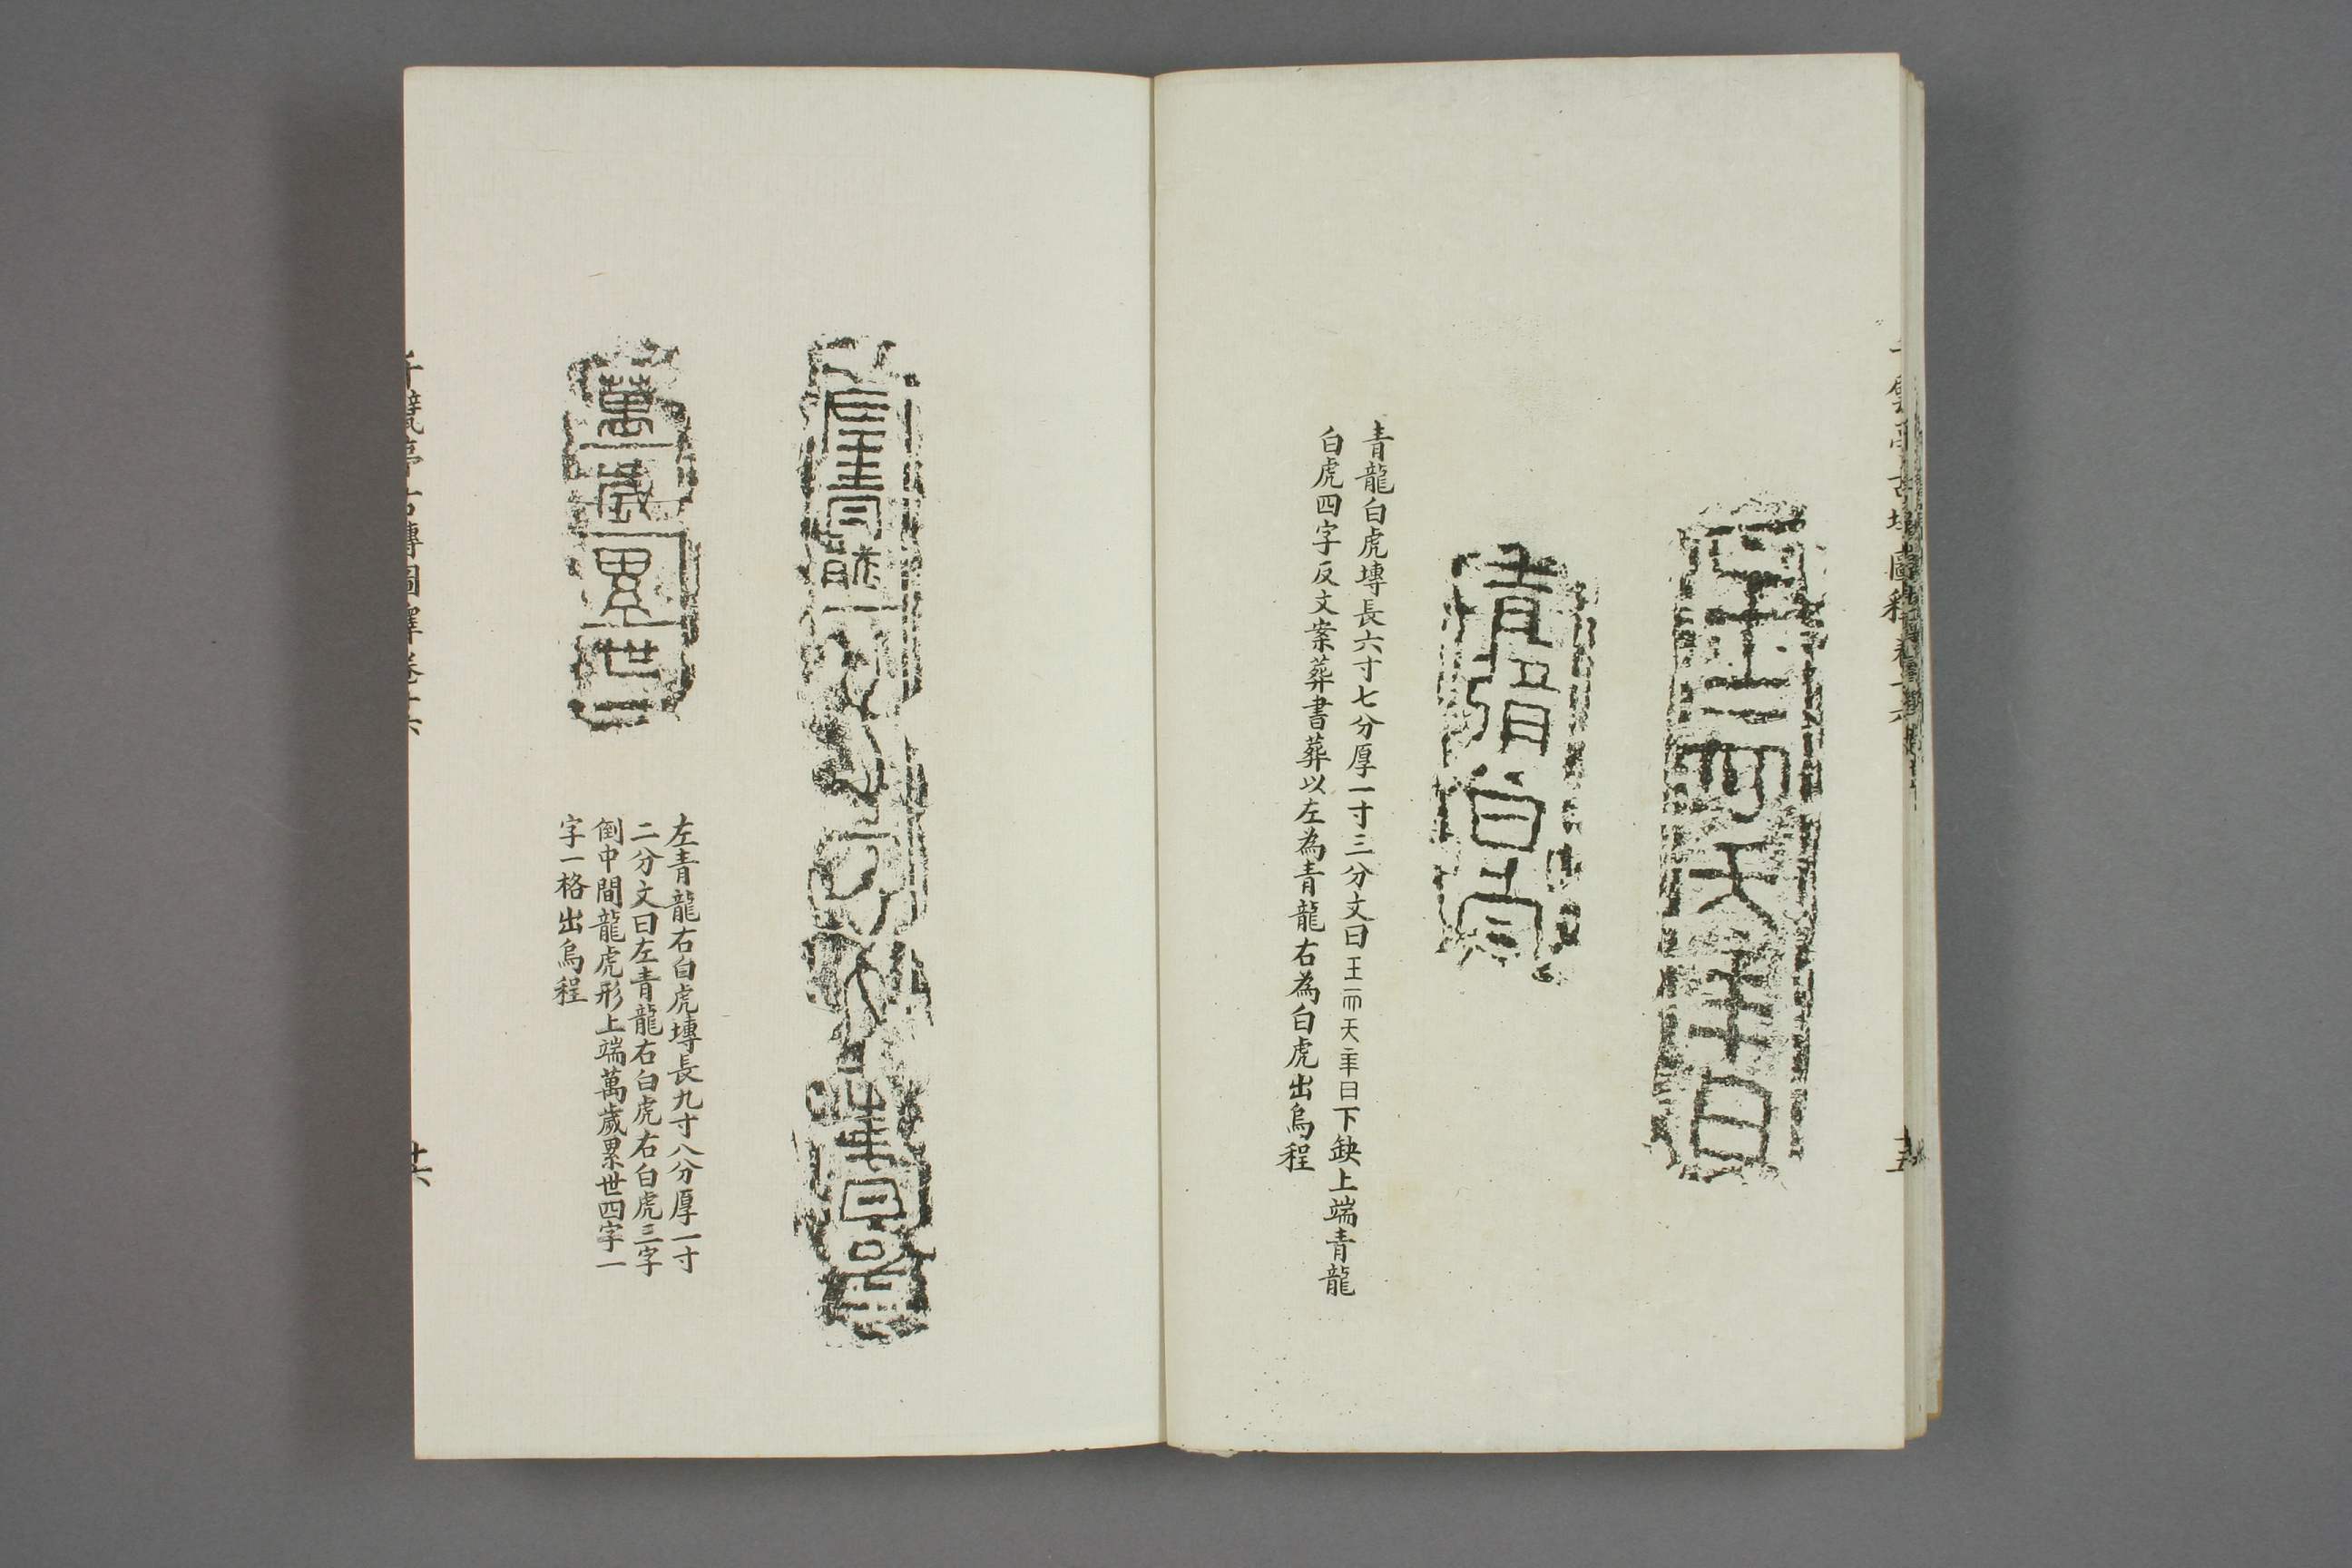 青龍白虎塼長六寸七分厚一寸三分文曰王一而天年日下缺上端青龍
白虎四字反文案葬書葬以左為青龍右為白虎出烏程
萬歲累世
左青龍右白虎塼長九寸八分厚一寸
二分文曰左青龍右白虎右白虎三字
倒中間龍虎形上端萬歲累世四字一
字一格出烏程
千甓亭古塼圖釋卷十六
廿六